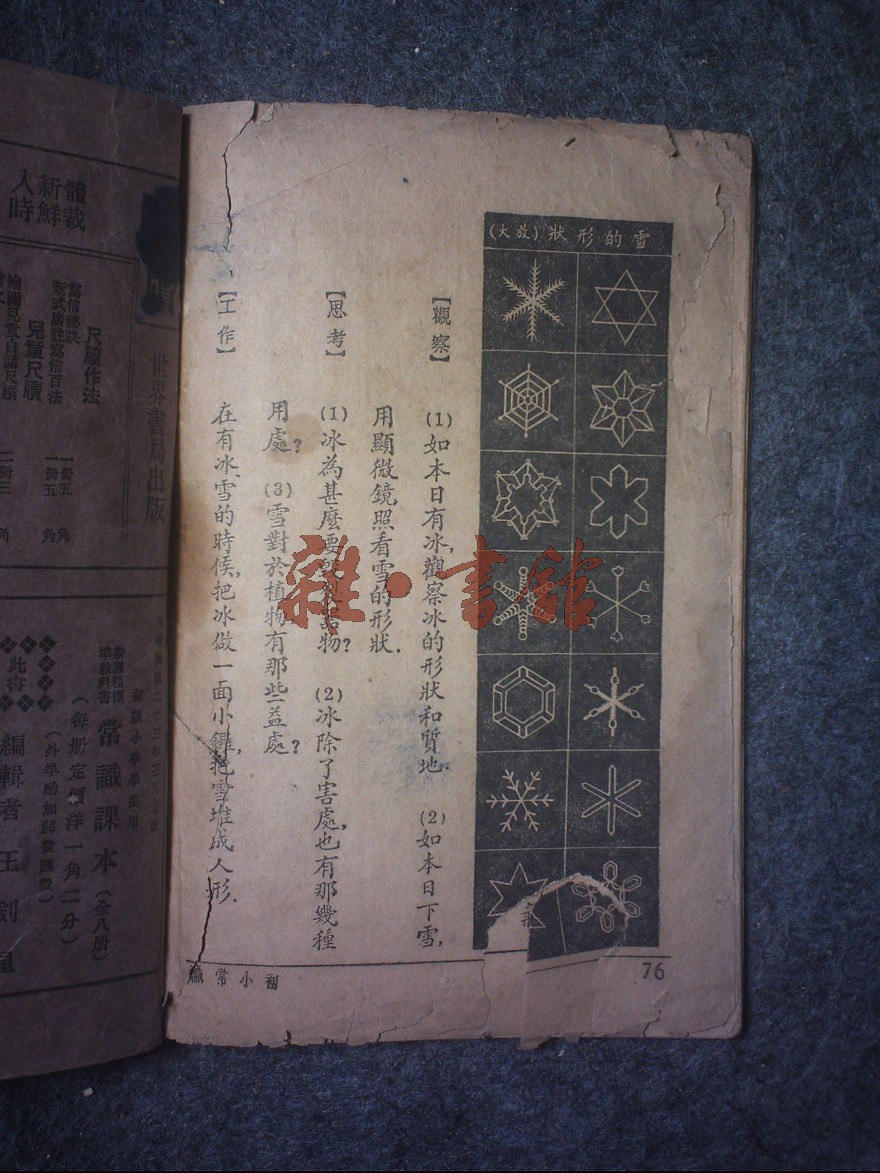 雪的形狀(放大)
【觀察】 (1)如本日有冰,觀察冰的形狀和質地. (2)如本日下雪,
用顯微鏡照看雪的形狀.
【思考】 (1)冰為甚麼要物? (2)冰除了害處,也有那幾種
用處? (3)雪對於植物有那些益處?
【工作】 在有冰、雪的時候,把冰做一面小鑼,把雪堆成人形.
76
初小常識
雜·書館
體裁
新鮮
入時
世界書局出版
尺牘作法
寫信秘訣
新式廣註寫信百法
一冊五角
兒童尺牘
一冊五角
初級小學學生用
新課程標準教科書
常識課本(全八册)
(每册定價洋一角二分)
(外埠酌加郵費匯費)
此書
編輯者王劍星